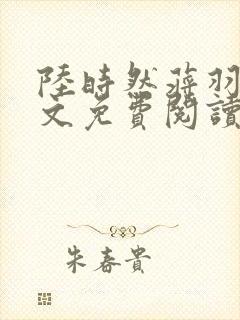 陸時然蔣羽
文免費閱讀
朱春貴